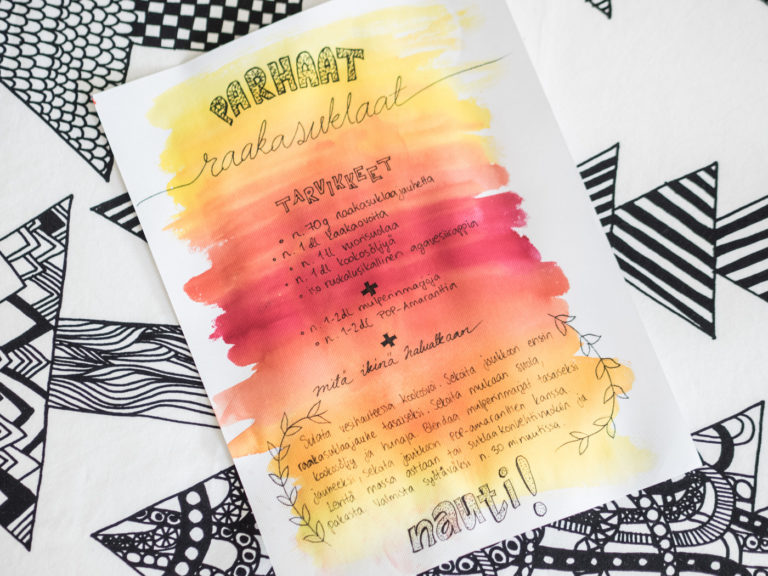 PARHAAT
raakasuklaat
TARVIKKEET
• n. 70g raakasuklaajauhetta
• n. 1 dl kaakaovoita
• n. 1 tl vuorisuolaa
• n. 1 dl kookosöljyä
• iso ruokalusikallinen agavesiirappia
+
• n. 1-2dl mulperinmarjoja
• n. 1-2dl POP-Amaranttia
+
mitä ikinä haluatkaan
Sulata vesihauteessa kookosvoi. Sekoita joukkoon ensin
raakasuklaajauhe tasaiseksi. Sekoita mukaan suola,
kookosöljy ja hunaja. Blendaa mulperinmarjat tasaiseksi
jauheeksi, sekoita joukkoon POP-amaranttien kanssa.
Levitä massa astiaan tai suklaakonvehtivuokiin ja
pakasta. Valmista syötäväksi n. 30 minuutissa.
nauti!